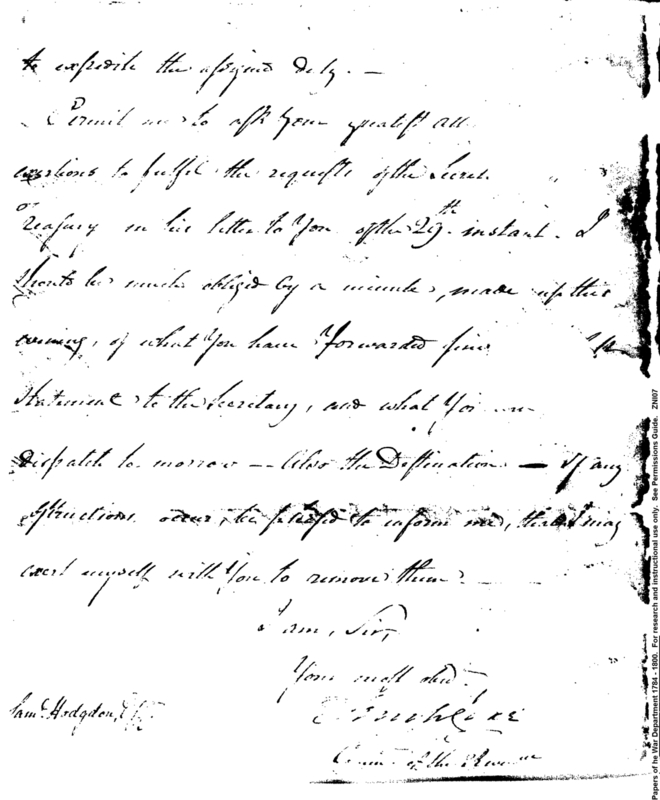 to expedite the assigned duty. —
Permit me to ask your greatest
exertions to fulfil the requests of the Secret.
of
Treasury in his letter to You of the 29th instant. I
should be much obliged by a minute, made up this
evening, of what You have forwarded since
Statement to the Secretary, and what You
dispatch to morrow — Also the Destination — If any
obstructions occur, be pleased to inform me, that I may
exert myself with You to remove them.
I am, Sir,
Your most obed.
Saml. Hodgdon, Esqr.
Tench Coxe
Commr. of the Revenue
Papers of he War Department 1784 - 1800. For research and instructional use only. See Permissions Guide. ZNI07